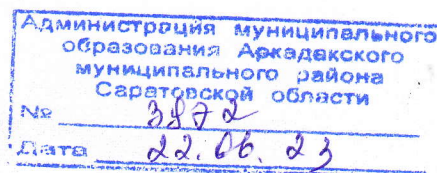 Администрация муниципального
образования Аркадакского
муниципального района
Саратовской области
№ 3972
Дата 22.06.23